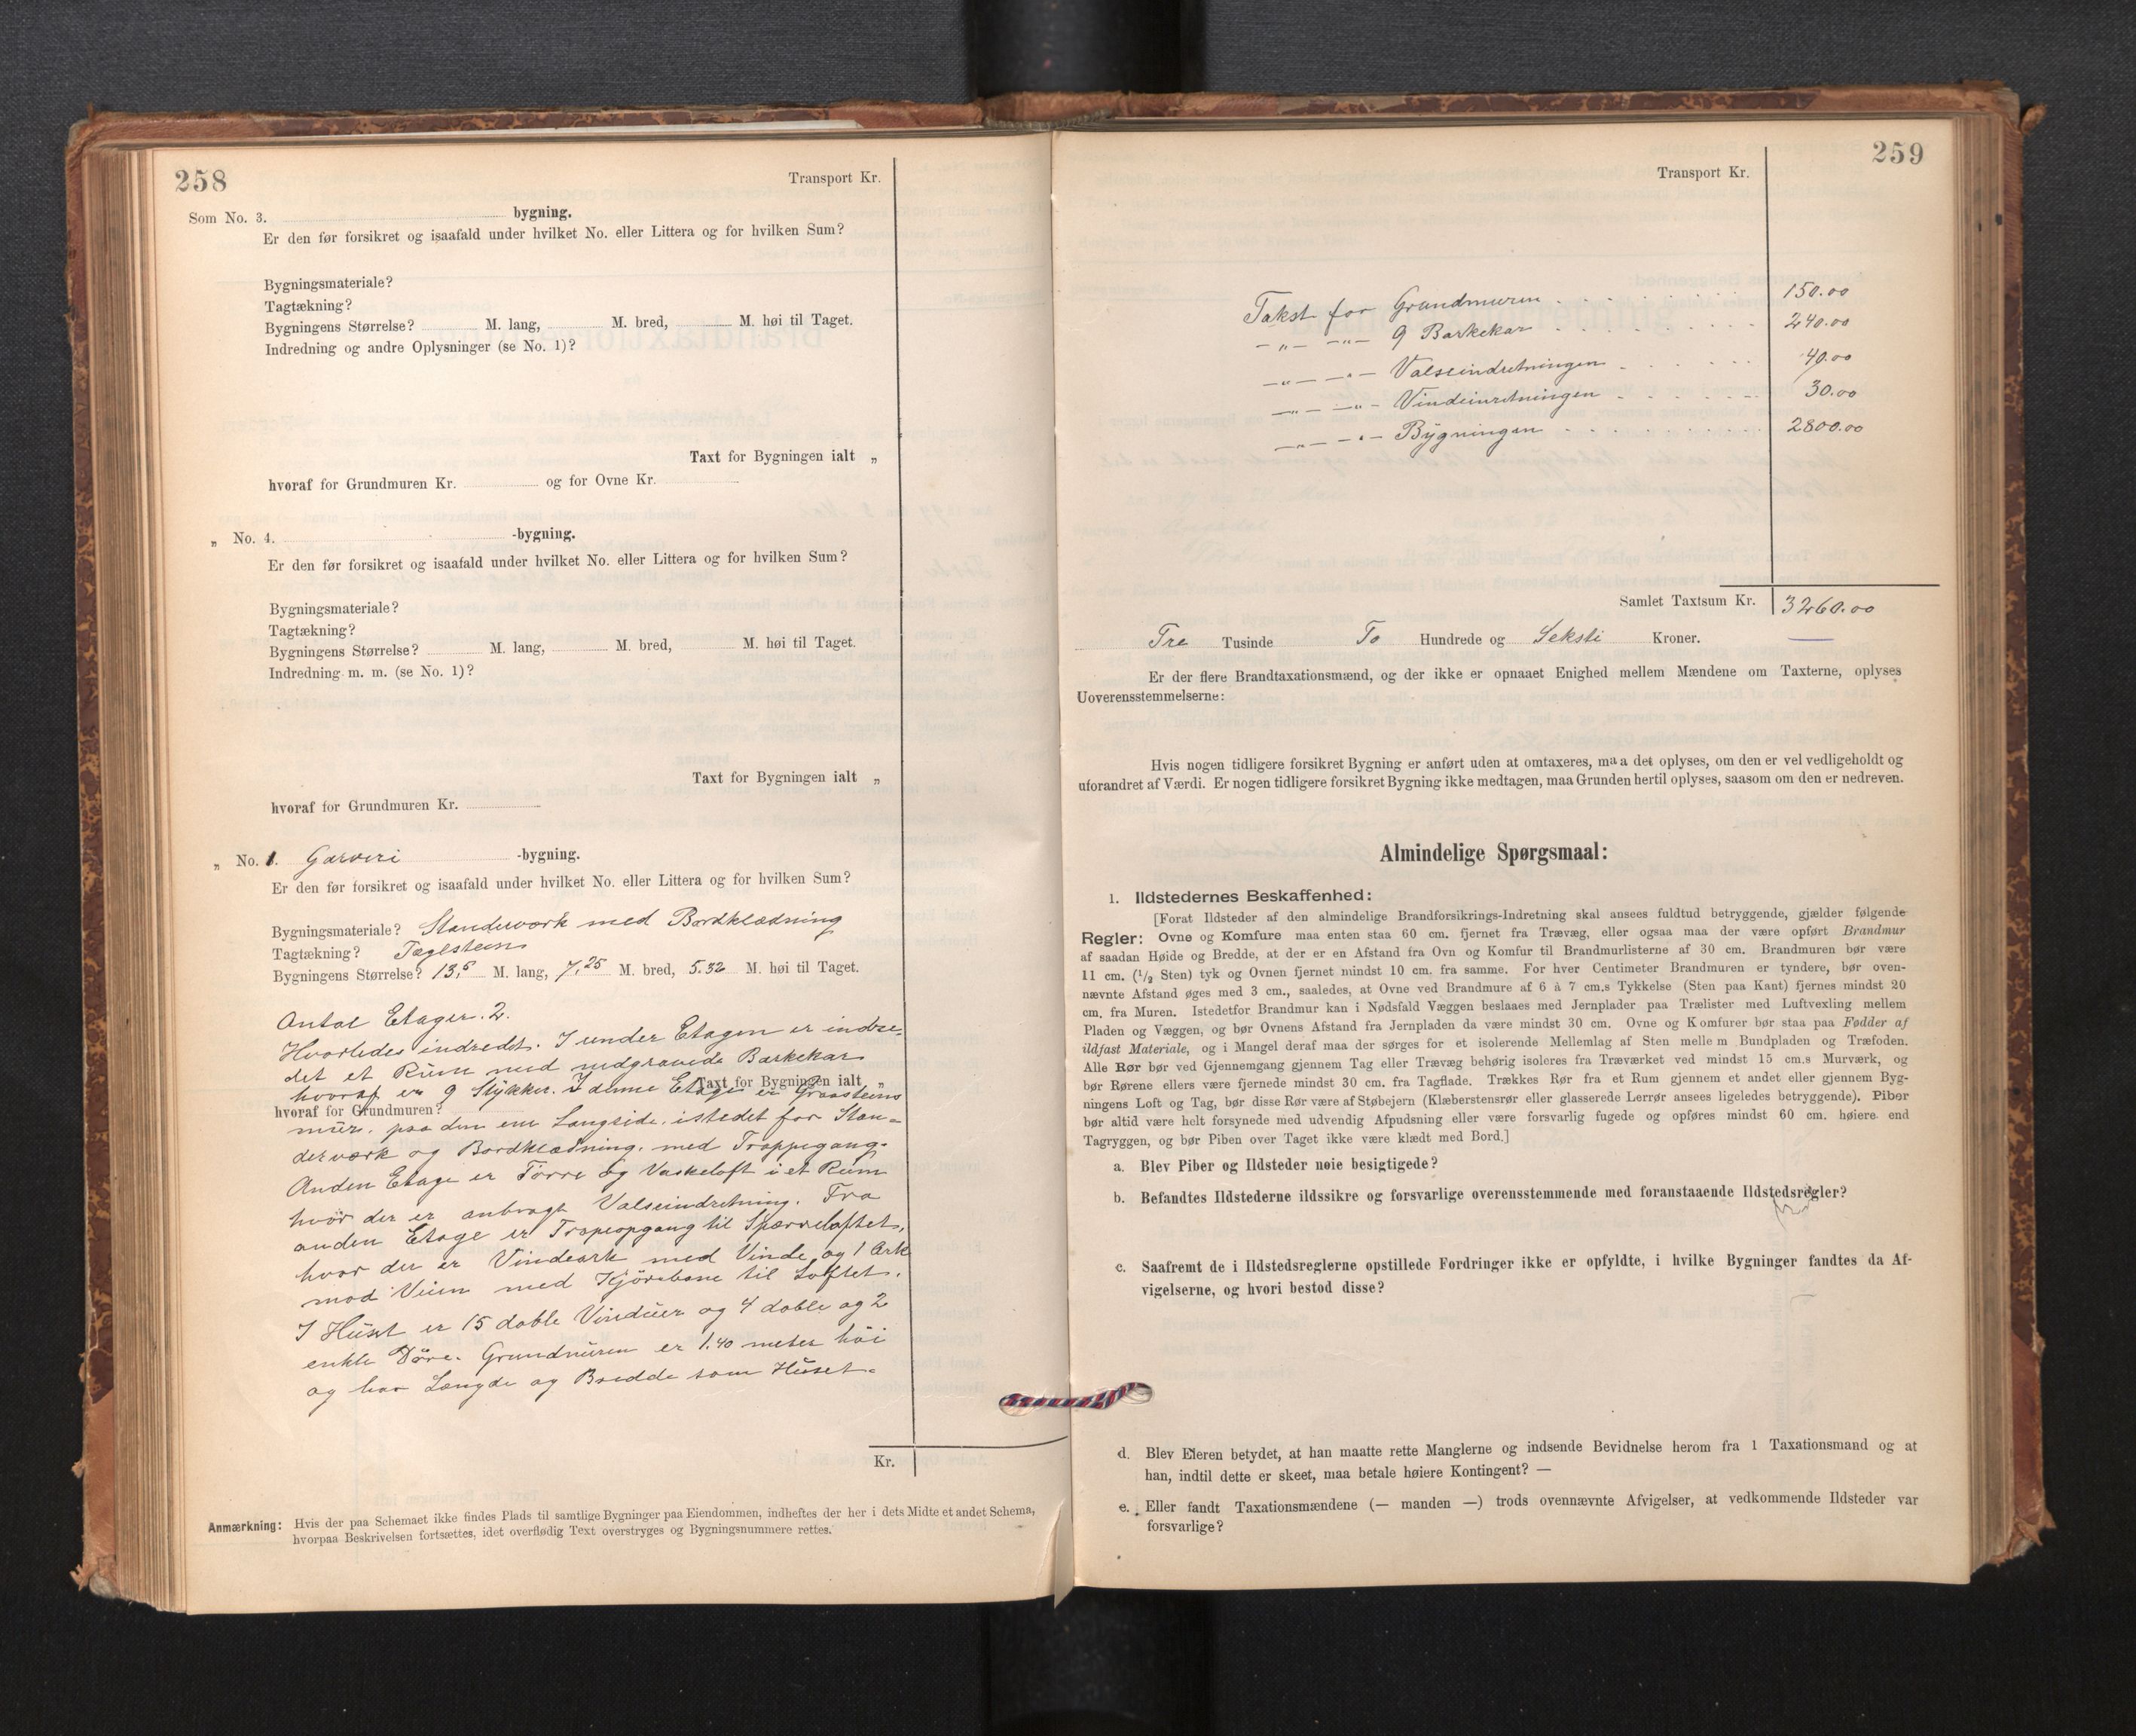 258
Transport Kr.
Som No. 3. bygning.
Er den før forsikret og isaafald under hvilket No. eller Littera og for hvilken Sum?
Bygningsmateriale?
Tagtækning?
Bygningens Størrelse? M. lang, M. bred, M. høi til Taget.
Indredning og andre Oplysninger (se No. 1)?
Taxt for Bygningen ialt „
hvoraf for Grundmuren Kr. og for Ovne Kr.
„ No. 4. -bygning.
Er den før forsikret og isaafald under hvilket No. eller Littera og for hvilken Sum?
Bygningsmateriale?
Tagtækning?
Bygningens Størrelse? M. lang, M. bred, M. høi til Taget.
Indredning m. m. (se No. 1)?
Taxt for Bygningen ialt „
hvoraf for Grundmuren Kr.
„ No. 1. Garveri -bygning.
Er den før forsikret og isaafald under hvilket No. eller Littera og for hvilken Sum?
Bygningsmateriale? Standerværk med Bordklædning
Tagtækning? Teglsteen
Bygningens Størrelse? 13,5 M. lang, 7,25 M. bred, 5.32 M. høi til Taget.
Antal Etager. 2.
Hvorledes indredet. I under Etagen er indre-
det et Rum med nedgravede Barkekar
hvoraf er 9 Stykker. I denne Etage er Graasteins
Taxt for Bygningen ialt „
hvoraf for Grundmuren?
mur. paa den ene Langside. istedet for Stan-
derværk og Bordklædning. med Trappegang.
Anden Etage er Tørre og Vaskeloft i et Rum
hvor der er anbragt Valseindretning. Fra
anden Etage er Trapeopgang til Spærreloftet,
hvor der er Vindeark med Vinde og 1 Ark
mod Veien med Kjørebane til Loftet.
I Huset er 15 doble Vinduer og 4 doble og 2
enkle Døre. Grundmuren er 1.40 meter høi
og har Længde og Bredde som Huset.
Kr.
Anmærkning: Hvis der paa Schemaet ikke findes Plads til samtlige Bygninger paa Eiendommen, indheftes der her i dets Midte et andet Schema,
hvorpaa Beskrivelsen fortsættes, idet overflødig Text overstryges og Bygningsnummere rettes.
259
Transport Kr.
Takst for Grundmuren 150.00
— „ — — „ — 9 Barkekar 240.00
— „ — — „ — Valseindretningen 40.00
— „ — — „ — Vindeinretningen 30.00
— „ — — „ — Bygningen 2800.00
Samlet Taxtsum Kr. 3260.00
Tre Tusinde To Hundrede og Seksti Kroner.
Er der flere Brandtaxationsmænd, og der ikke er opnaaet Enighed mellem Mændene om Taxterne, oplyses
Uoverensstemmelserne:
Hvis nogen tidligere forsikret Bygning er anført uden at omtaxeres, maa det oplyses, om den er vel vedligeholdt og
uforandret af Værdi. Er nogen tidligere forsikret Bygning ikke medtagen, maa Grunden hertil oplyses, saasom om den er nedreven.
Almindelige Spørgsmaal:
1. Ildstedernes Beskaffenhed:
[Forat Ildsteder af den almindelige Brandforsikrings-Indretning skal ansees fuldtud betryggende, gjælder følgende
Regler: Ovne og Komfure maa enten staa 60 cm. fjernet fra Trævæg, eller ogsaa maa der være opført Brandmur
af saadan Høide og Bredde, at der er en Afstand fra Ovn og Komfur til Brandmurlisterne af 30 cm. Brandmuren bør være
11 cm. (1/2 Sten) tyk og Ovnen fjernet mindst 10 cm. fra samme. For hver Centimeter Brandmuren er tyndere, bør oven-
nævnte Afstand øges med 3 cm., saaledes, at Ovne ved Brandmure af 6 à 7 cm.s Tykkelse (Sten paa Kant) fjernes mindst 20
cm. fra Muren. Istedetfor Brandmur kan i Nødsfald Væggen beslaaes med Jernplader paa Trælister med Luftvexling mellem
Pladen og Væggen, og bør Ovnens Afstand fra Jernpladen da være mindst 30 cm. Ovne og Komfurer bør staa paa Fødder af
ildfast Materiale, og i Mangel deraf maa der sørges for et isolerende Mellemlag af Sten mellem Bundpladen og Træfoden.
Alle Rør bør ved Gjennemgang gjennem Tag eller Trævæg behørig isoleres fra Træværket ved mindst 15 cm.s Murværk, og
bør Rørene ellers være fjernede mindst 30 cm. fra Tagflade. Trækkes Rør fra et Rum gjennem et andet eller gjennem Byg-
ningens Loft og Tag, bør disse Rør være af Støbejern (Klæberstensrør eller glasserede Lerrør ansees ligeledes betryggende). Piber
bør altid være helt forsynede med udvendig Afpudsning eller være forsvarlig fugede og opføres mindst 60 cm. høiere end
Tagryggen, og bør Piben over Taget ikke være klædt med Bord.]
a. Blev Piber og Ildsteder nøie besigtigede?
b. Befandtes Ildstederne ildssikre og forsvarlige overensstemmende med foranstaaende Ildstedsregler?
c. Saafremt de i Ildstedsreglerne opstillede Fordringer ikke er opfyldte, i hvilke Bygninger fandtes da Af-
vigelserne, og hvori bestod disse?
d. Blev Eieren betydet, at han maatte rette Manglerne og indsende Bevidnelse herom fra 1 Taxationsmand og at
han, indtil dette er skeet, maa betale høiere Kontingent? —
e. Eller fandt Taxationsmændene (— manden —) trods ovennævnte Afvigelser, at vedkommende Ildsteder var
forsvarlige?